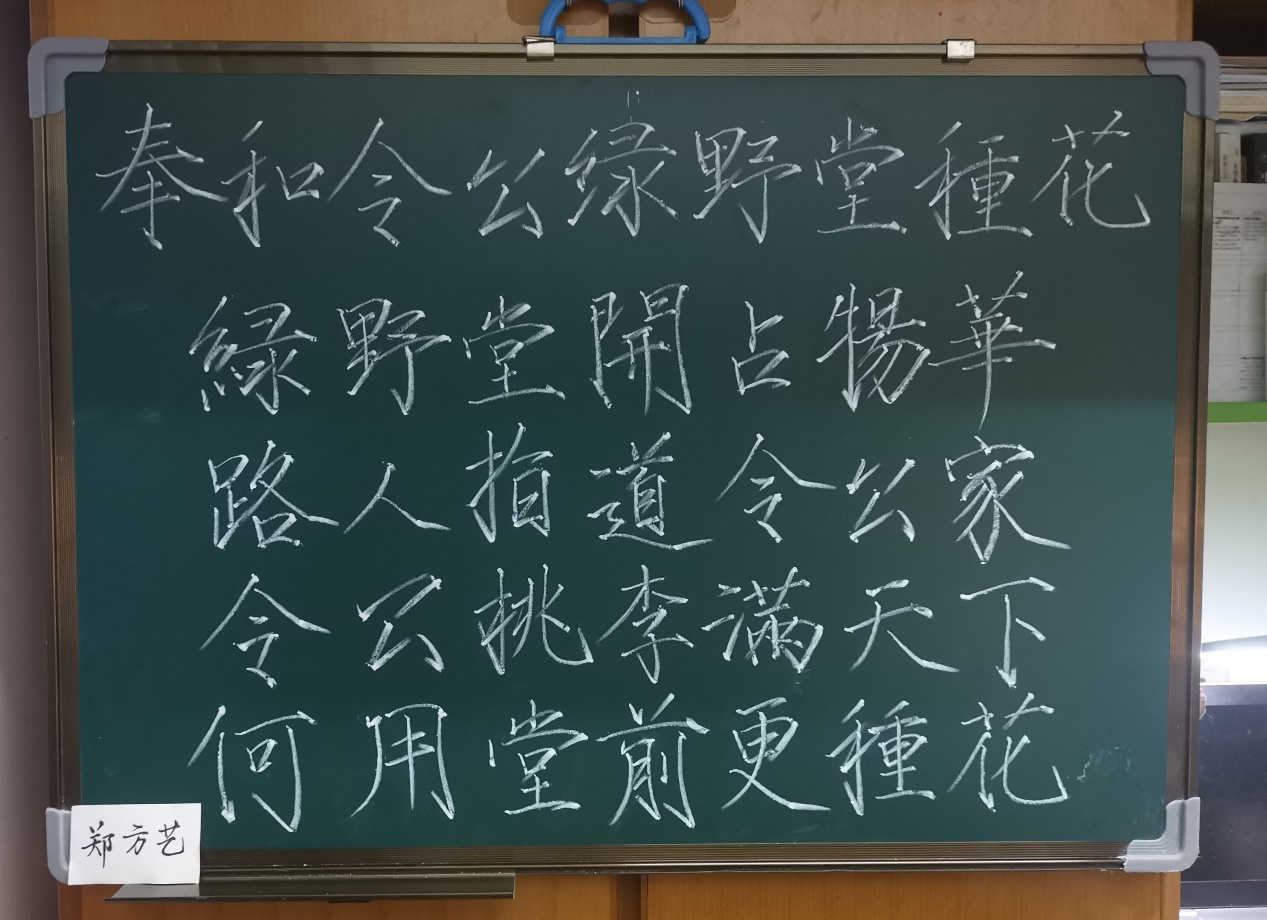 奉和令公绿野堂種花
緑野堂開占物華
路人指道令公家
令公桃李滿天下
何用堂前更種花
郑方艺